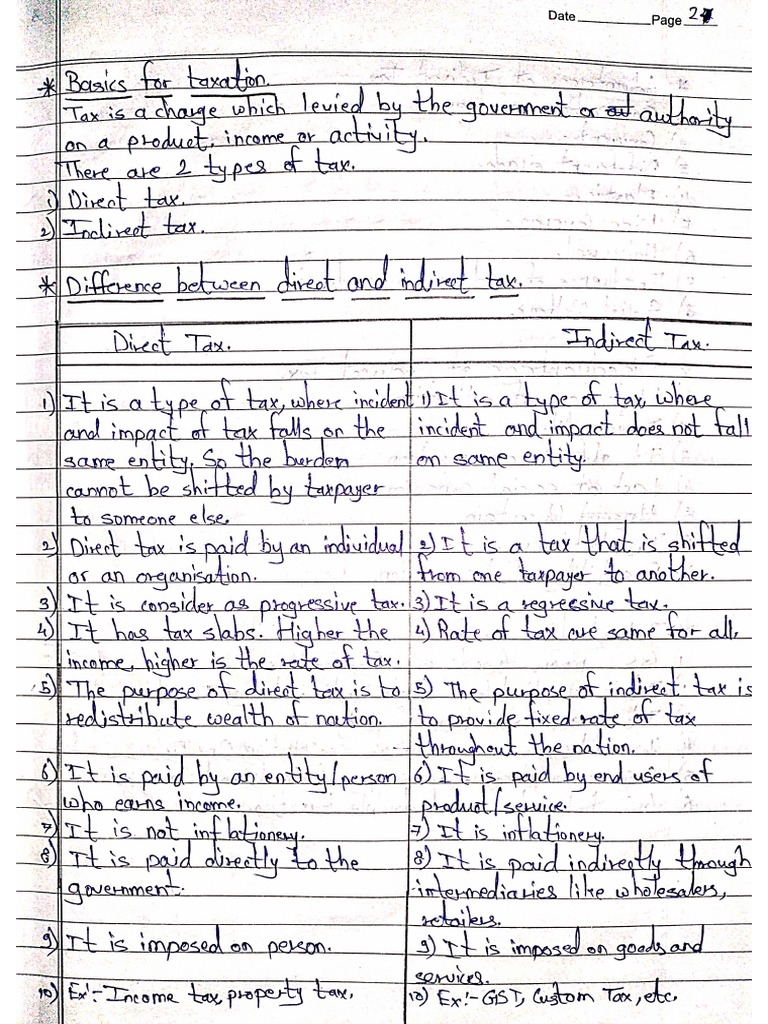 Date Page 27
* Basics for taxation.
Tax is a charge which levied by the government or authority
on a product, income or activity.
There are 2 types of tax.
1) Direct tax.
2) Indirect tax.
* Difference between direct and indirect tax.
Direct Tax. Indirect Tax.
1) It is a type of tax, where incident 1) It is a type of tax, where
and impact of tax falls on the incident and impact does not fall
same entity. So the burden on same entity.
cannot be shifted by taxpayer
to someone else.
2) Direct tax is paid by an individual 2) It is a tax that is shifted
or an organisation. from one taxpayer to another.
3) It is consider as progressive tax. 3) It is a regreesive tax.
4) It has tax slabs. Higher the 4) Rate of tax are same for all.
income, higher is the rate of tax.
5) The purpose of direct tax is to 5) The purpose of indirect tax is
redistribute wealth of nation. to provide fixed rate of tax
throughout the nation.
6) It is paid by an entity/person 6) It is paid by end users of
who earns income. product/service.
7) It is not inflationery. 7) It is inflationery.
8) It is paid directly to the 8) It is paid indirectly through
government. intermediaries like wholesalers,
retailers.
9) It is imposed on person. 9) It is imposed on goods and
services.
10) Ex:- Income tax, property tax. 10) Ex:- GST, Custom Tax, etc.